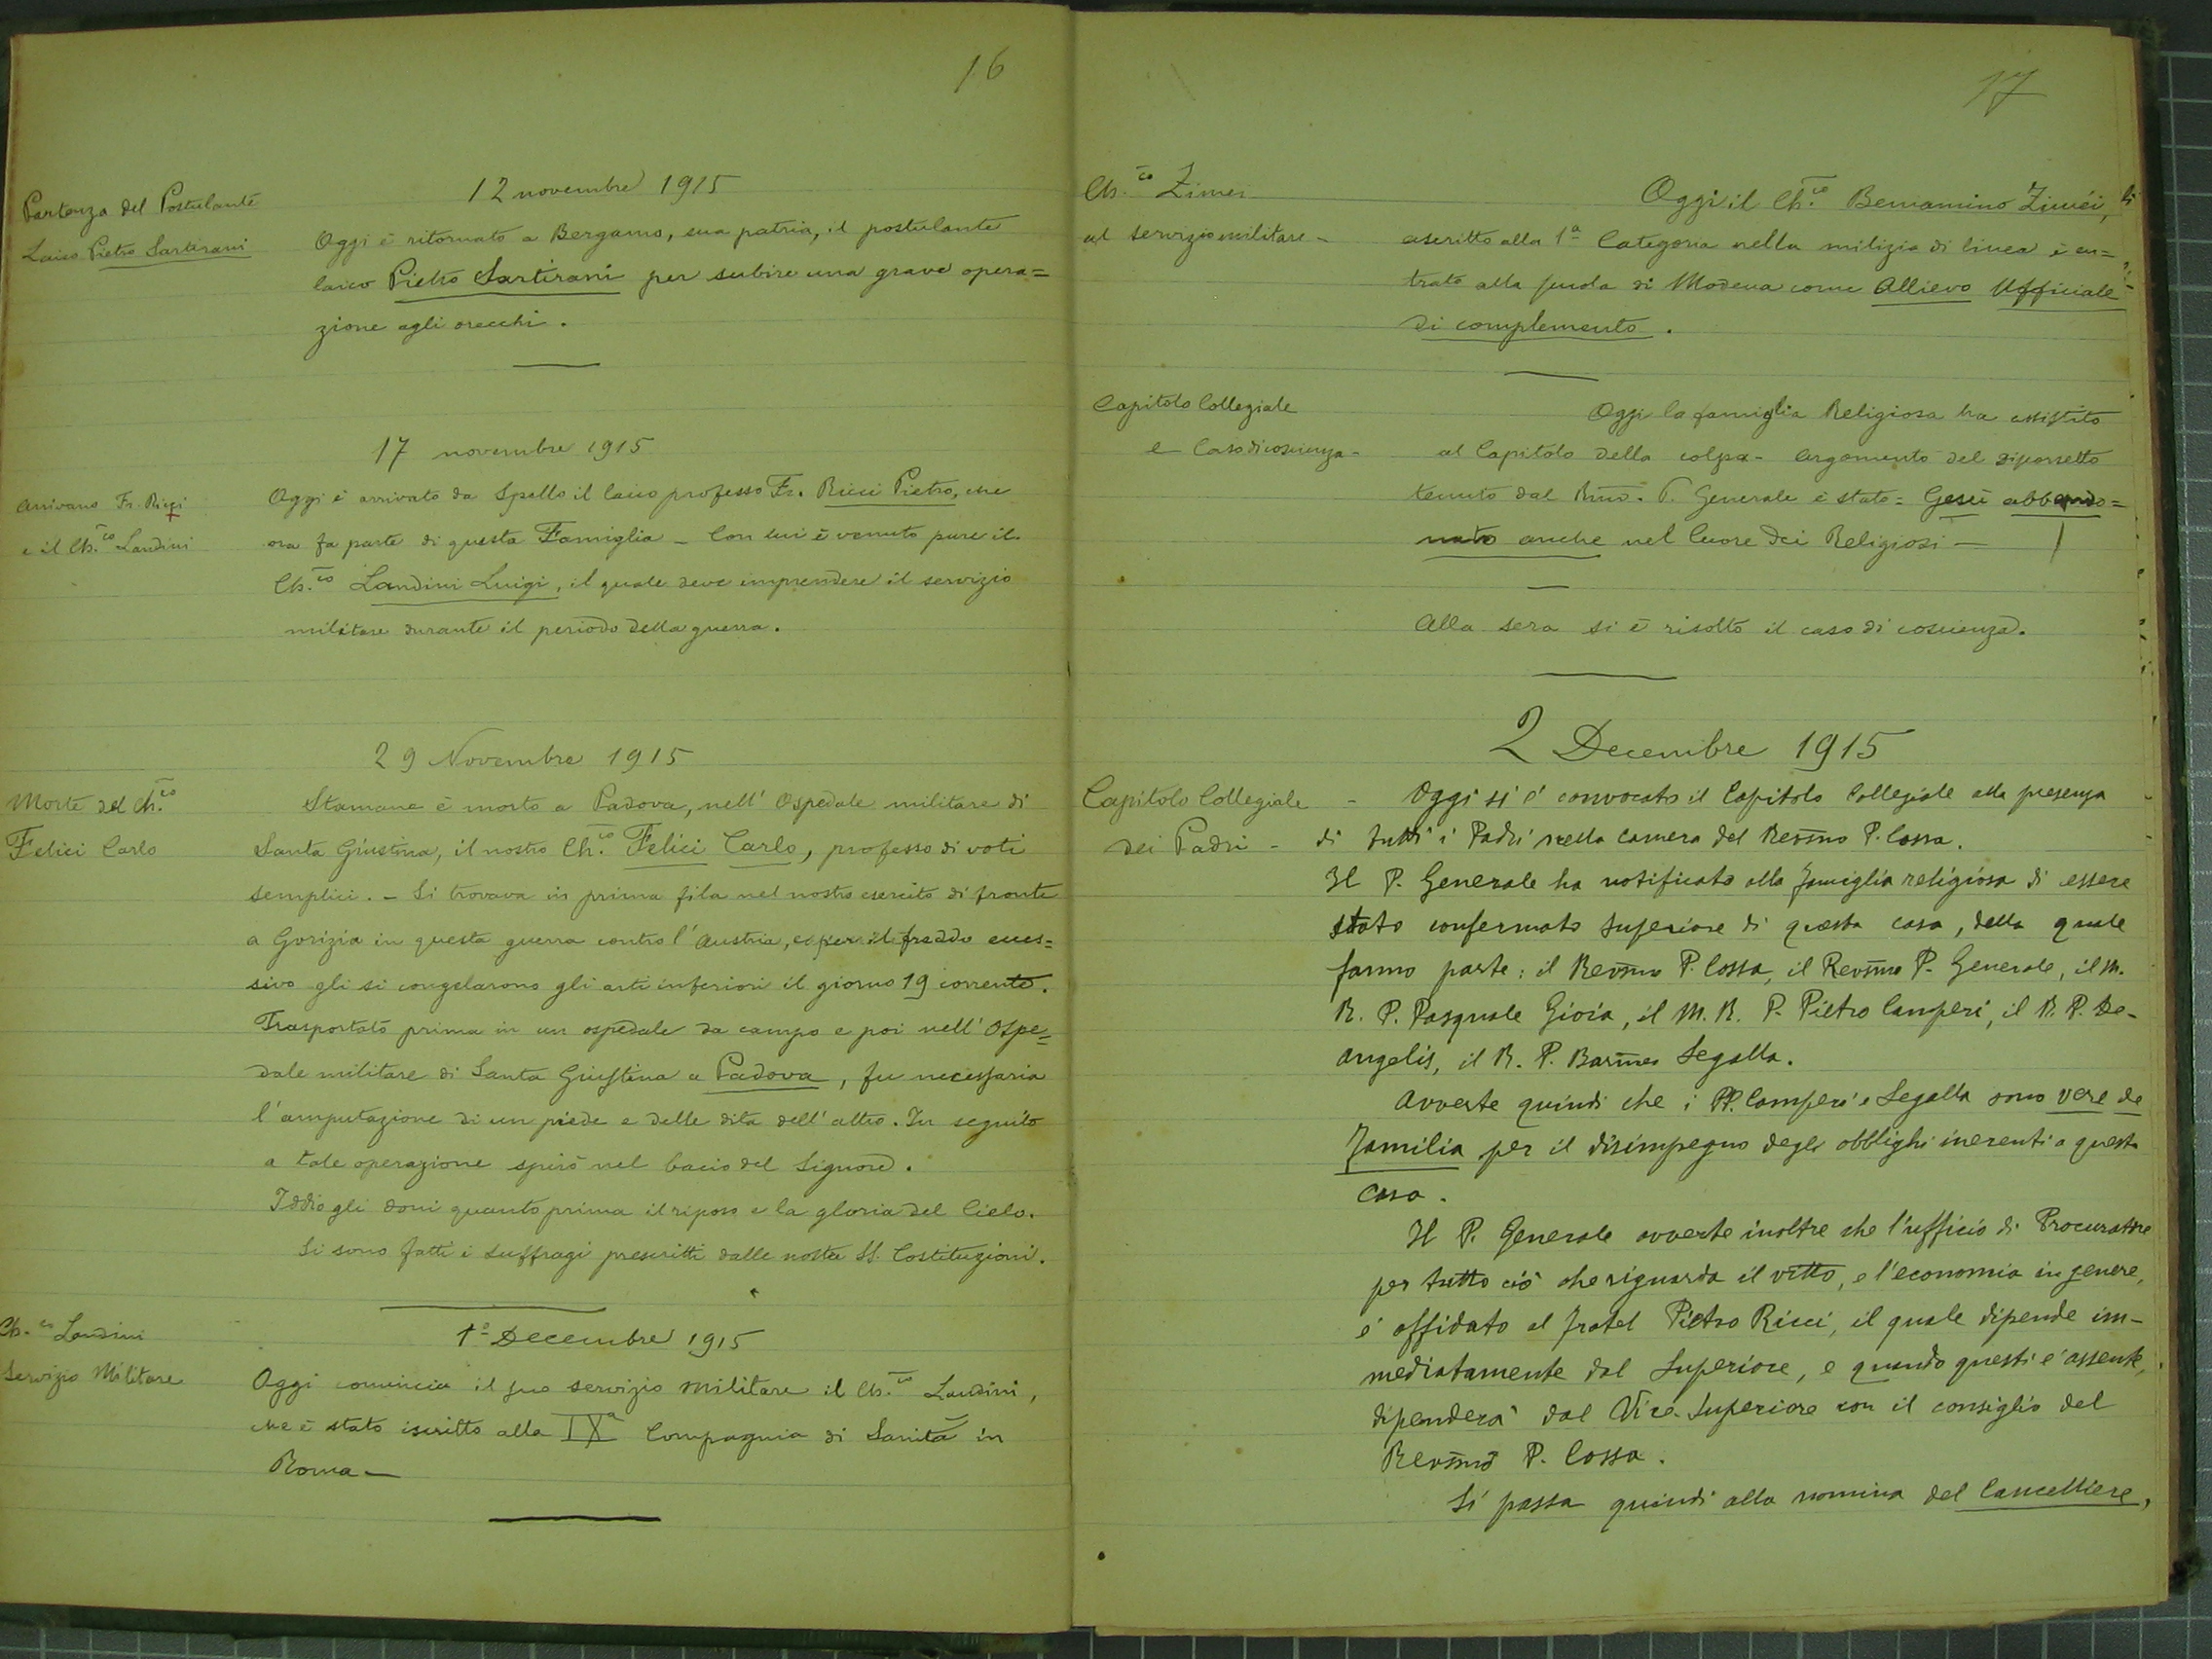 16
Partenza del Postulante
Laico Pietro Sartirani
12 novembre 1915
Oggi è ritornato a Bergamo, sua patria, il postulante
laico Pietro Sartirani per subire una grave opera=
zione agli orecchi.
17 novembre 1915
Arrivano Fr. Ricci
e il Ch.co Landini
Oggi è arrivato da Spello il laico professo Fr. Ricci Pietro, che
ora fa parte di questa Famiglia - Con lui è venuto pure il
Ch.co Landini Luigi, il quale deve imprendere il servizio
militare durante il periodo della guerra.
29 Novembre 1915
Morte del Ch.co
Felici Carlo
Stamane è morto a Padova, nell' Ospedale militare di
Santa Giustina, il nostro Ch.co Felici Carlo, professo di voti
semplici. - Si trovava in prima fila nel nostro esercito di fronte
a Gorizia in questa guerra contro l'Austria, e per il freddo ecces=
sivo gli si congelarono gli arti inferiori il giorno 19 corrente.
Trasportato prima in un ospedale da campo e poi nell' Ospe=
dale militare di Santa Giustina a Padova, fu necessaria
l'amputazione di un piede e delle dita dell' altro. In seguito
a tale operazione spirò nel bacio del Signore.
Iddio gli doni quanto prima il riposo e la gloria del Cielo.
Si sono fatti i suffragi prescritti dalle nostre SS. Costituzioni.
Ch.co Landini
Servizio Militare
1° Decembre 1915
Oggi comincia il suo servizio militare il Ch.co Landini,
che è stato iscritto alla IXa Compagnia di Sanità in
Roma -
17
Ch.co Zimei
al servizio militare -
Oggi il Ch.co Beniamino Zimei,
ascritto alla 1a Categoria nella milizia di linea è en=
trato alla scuola di Modena come Allievo Ufficiale
di complemento.
Capitolo Collegiale
e Caso di coscienza -
Oggi la famiglia Religiosa ha assistito
al Capitolo della colpa - Argomento del discorsetto
tenuto dal Rmo. P. Generale è stato = Gesù abbando=
nato anche nel Cuore dei Religiosi -
Alla sera si è risolto il caso di coscienza.
2 Decembre 1915
Capitolo Collegiale
dei Padri -
- Oggi si è convocato il Capitolo Collegiale alla presenza
di tutti i Padri nella camera del Revmo P. Cossa.
Il P. Generale ha notificato alla famiglia religiosa di essere
stato confermato Superiore di questa casa, della quale
fanno parte: il Revmo P. Cossa, il Revmo P. Generale, il M.
R. P. Pasquale Gioia, il M. R. P. Pietro Camperi, il R. P. De-
angelis, il R. P. Barmeo Segalla.
Avverte quindi che i PP. Camperi e Segalla sono vere de
familia per il disimpegno degli obblighi inerenti a questa
casa.
Il P. Generale avverte inoltre che l'ufficio di Procuratore
per tutto ciò che riguarda il vitto, e l'economia in genere,
è affidato al fratel Pietro Ricci, il quale dipende im-
mediatamente dal Superiore, e quando questi è assente,
dipenderà dal Vice-Superiore con il consiglio del
Revmo P. Cossa.
Si passa quindi alla nomina del Cancelliere,